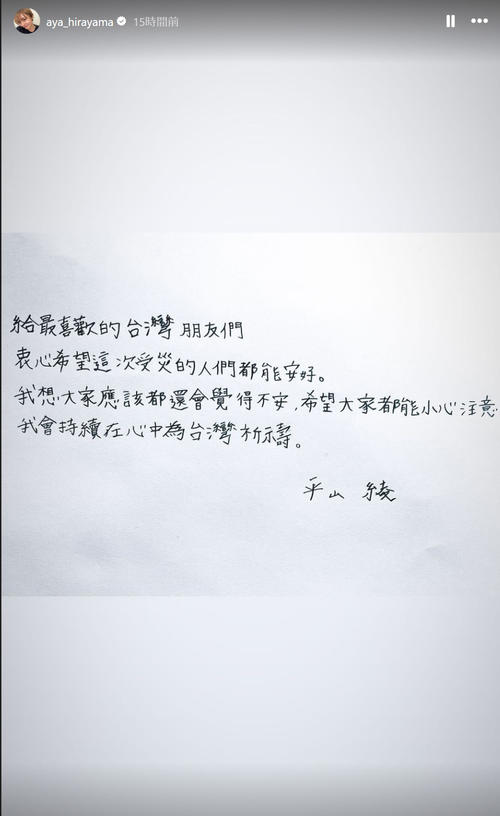 aya_hirayama 15時間前
給最喜歡的台灣朋友們
衷心希望這次受災的人們都能安好。
我想大家應該都還會覺得不安,希望大家都能小心注意.
我會持續在心中為台灣祈禱。
平山 綾